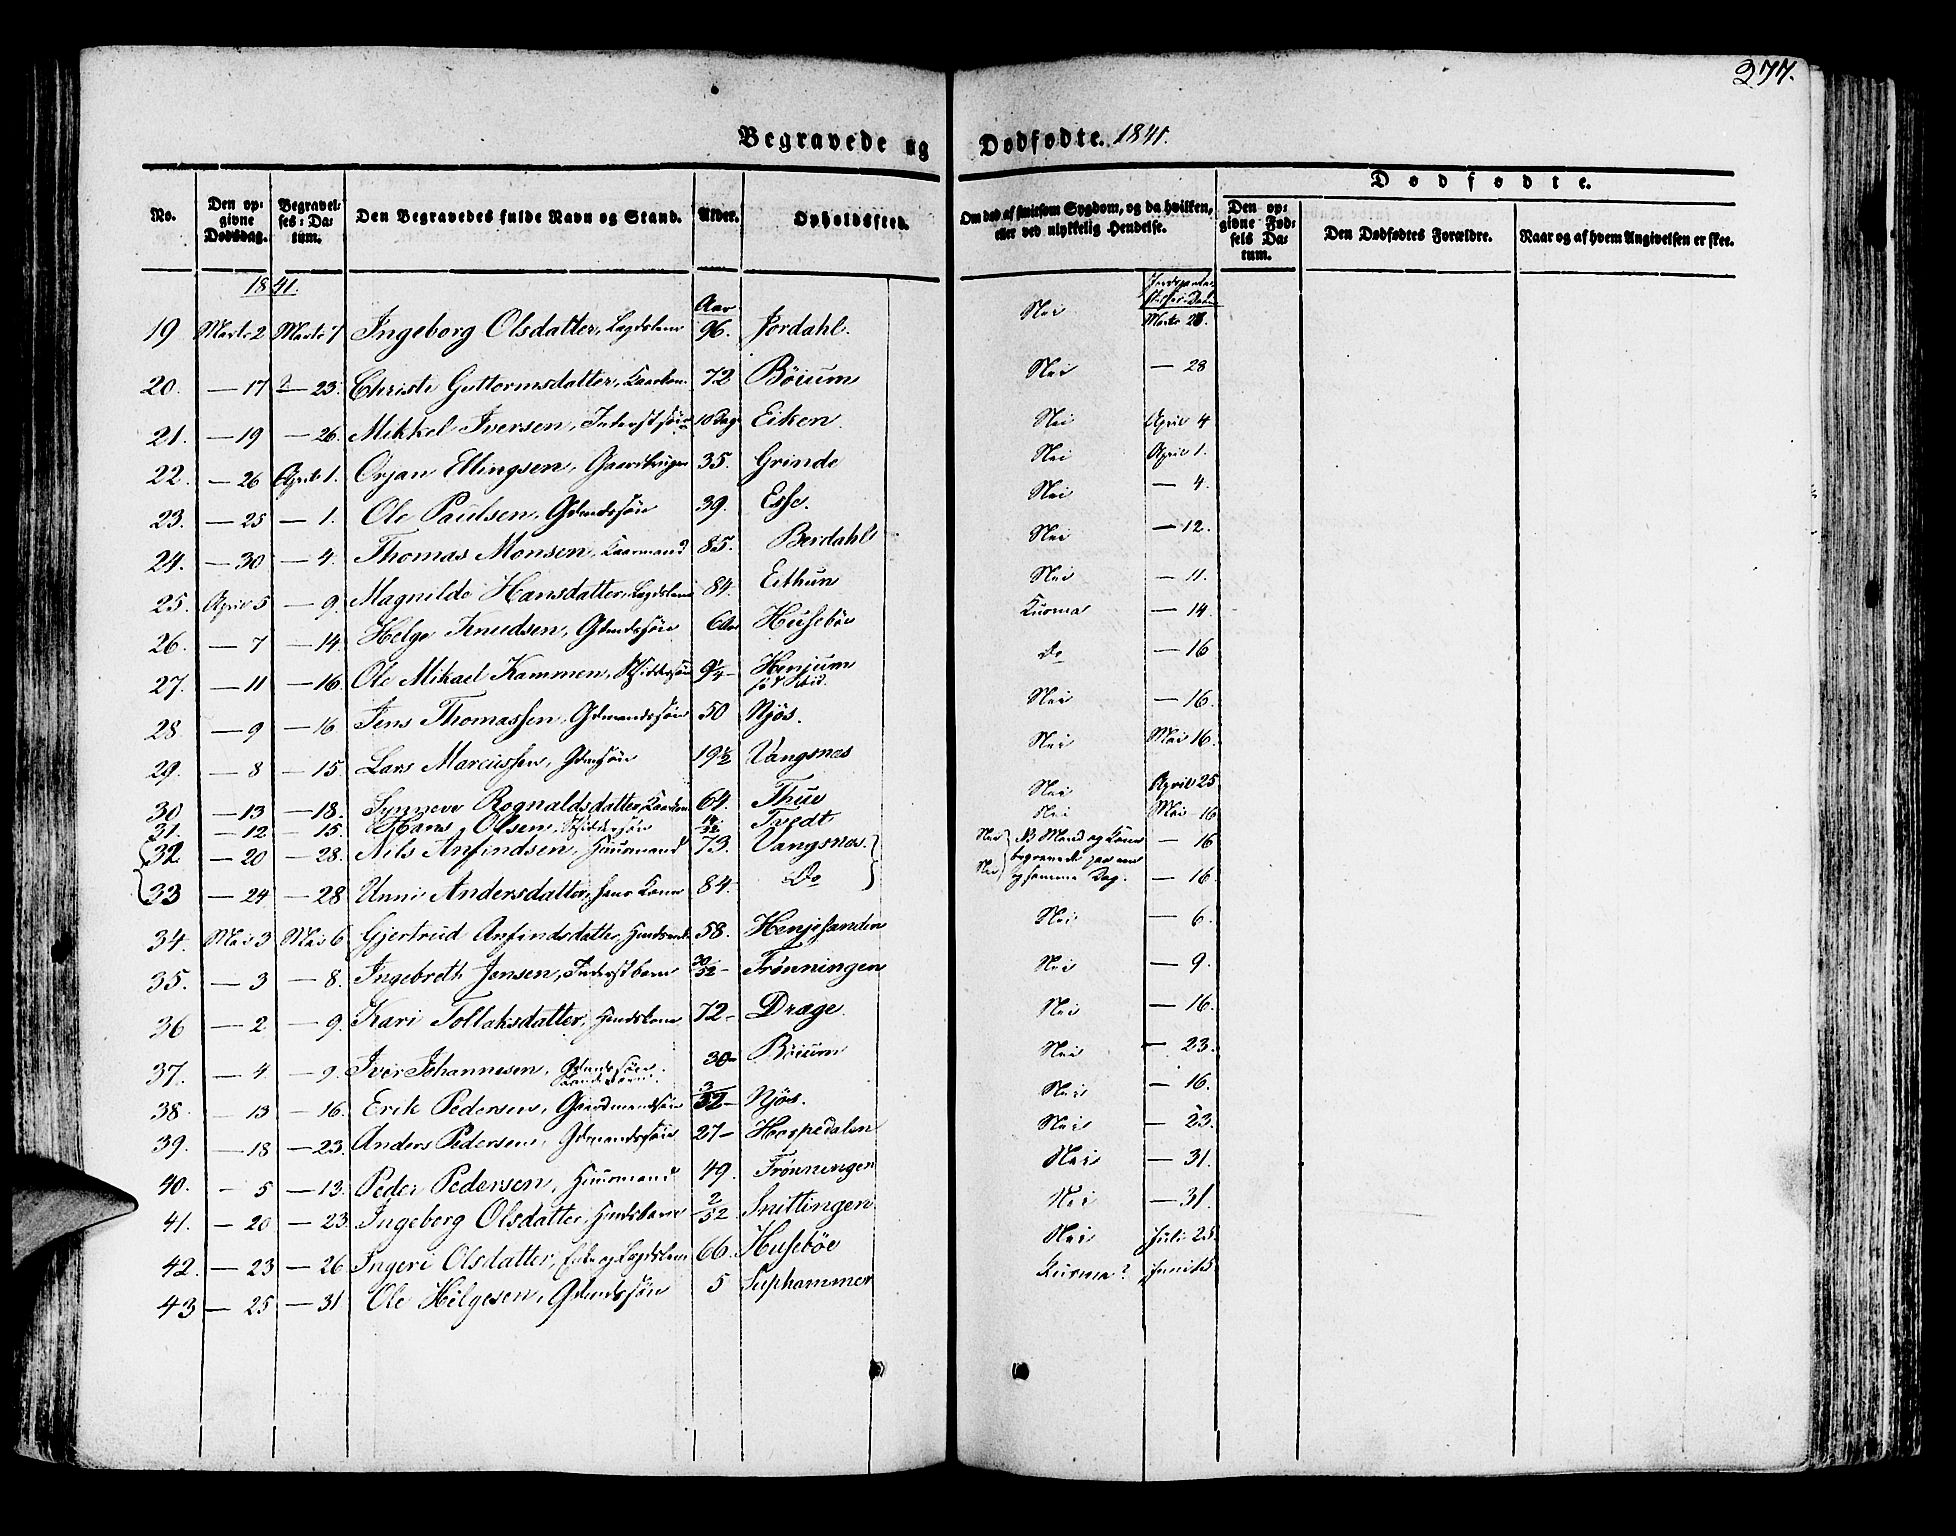 277.
Begravede og Dødfødte. 1841.
No. | Den opgivne Dødsdag. | Begravelses-Datum. | Den Begravedes fulde Navn og Stand. | Alder. | Opholdssted. | Om død af smitsom Sygdom, og da hvilken, eller ved ulykkelig Hendelse. | Dødfødte. | Den opgivne Fødsels Datum. | Den Dødfødtes Forældre. | Naar og af hvem Angivelsen er skee.
1841. Aar
19 Marts 2 Marts 7 Ingeborg Olsdatter, Lægdslem 96. Jordahl. Nei Marts 28.
20. — 17 — 23. Christi Guttormsdatter, 72 Böium Nei — 28
21. — 19 — 26. Mikkel Iversen, Inderstsön 10 Dag Eiken. Nei April 4
22. — 26 April 1. Orjan Ellingsen, Gaardbruger 35. Grinde Nei April 1.
23. — 25 — 1. Ole Paulsen, Gdmdssön 39. Esse. Nei — 4.
24. — 30 — 4. Thomas Monsen, Kaarmand 85. Berdahl Nei — 12.
25. April 5 — 9. Magnilde Hansdatter, Lægdslem 84. Eithun Nei — 11.
26. — 7 — 14. Helge Knudsen, Gdmdssön Huseböe Kusma — 14
27. — 11 — 16. Ole Mikael Kammen, 9¼ Henjum Do — 16
28. — 9 — 16 Jens Thomassen, Gdmandssön 50 Njös. Nei — 16.
29. — 8 — 15. Lars Marcussen, Gdmsön 19½ Vangsnes Nei Mai 16.
30 — 13 — 18. Synneve Rognaldsdatter, 64. Thue Nei April 25
31. — 12 — 15. Hans Olsen, Tvedt Nei Mai 16
32 — 20 — 28. Nils Anfindsen, Huusmand 73. Vangsnes. Nei NB Mand og Kone — 16
begravede paa een
33 — 24 — 28 Unni Andersdatter, hans Kone 84. Do Nei og samme Dag. — 16.
34. Mai 3 Mai 6 Gjertrud Anfindsdatter, 58. Henjesanden Nei — 6.
35. — 3 — 8. Ingebreth Jonsen, Inderstbarn 30/52 Frønningen Nei — 9.
36 — 2 — 9. Kari Tollaksdatter, 72 Drage. Nei — 16.
37. — 4 — 9. Iver Johannesen, Gdmdssön. 30 Böium Nei — 23.
38. — 13 — 16. Erik Pedersen, Gaardmandssön 3/52 Njös. Nei — 16.
39. — 18 — 23. Anders Pedersen, Gdmandssön 27 Hospedalen Nei — 23.
40. — 5 — 13. Peder Pedersen, Huusmand 49. Frønningen Nei — 31.
41. — 20 — 23. Ingeborg Olsdatter, 2/52 Snittingen Nei — 31.
42. — 23 — 26 Ingeri Olsdatter, Enke og Lægdslem 66. Husebøe Nei Juli 25
43 — 25 — 31 Ole Helgesen, Gdmdssön 5 Suphammer Kusma? Juni 15